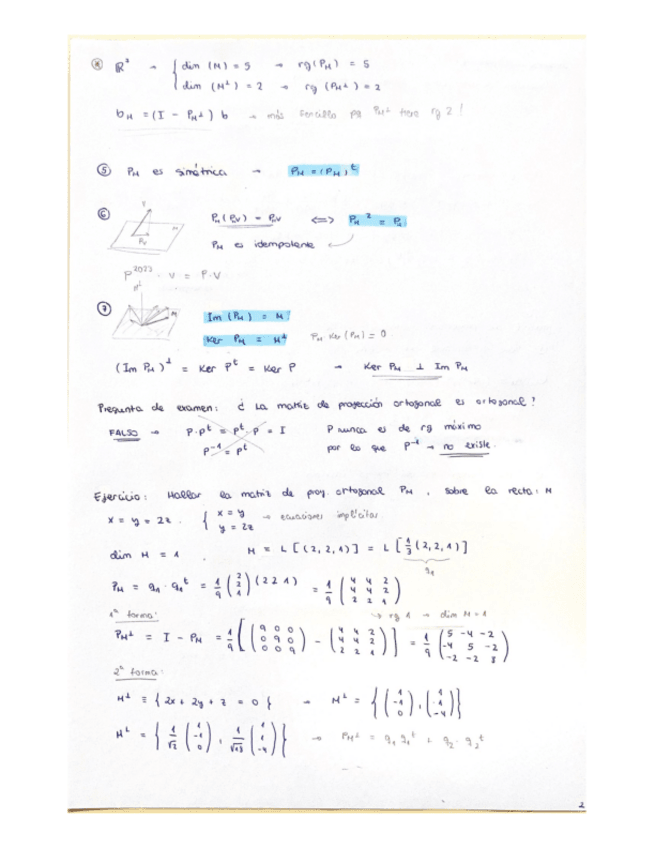 ④ ℝ⁷ → { dim (M) = 5 → rg(P_M) = 5
dim (M^⊥) = 2 → rg (P_M^⊥) = 2
b_M = (I - P_M^⊥) b → más sencillo pq P_M^⊥ tiene rg 2!
⑤ P_M es simétrica → P_M = (P_M)^t
⑥ P_M (P_M V) = P_M V ⟺ P_M² = P_M
M
P_V
P_M es idempotente
P²⁰²² · V = P · V
⑦ M^⊥
M
Im (P_M) = M
Ker P_M = M^⊥ P_M Ker (P_M) = 0
(Im P_M)^⊥ = Ker P^t = Ker P → Ker P_M ⊥ Im P_M
Pregunta de examen: ¿ La matriz de proyección ortogonal es ortogonal?
FALSO → P·P^t = P^t·P = I P nunca es de rg máximo
P⁻¹ = P^t por lo que P⁻¹ → no existe.
Ejercicio: Hallar la matriz de proy. ortogonal P_M, sobre la recta: M
x = y = 2z. { x = y
y = 2z → ecuaciones implícitas
dim M = 1. M = L [(2,2,1)] = L [1/3 (2,2,1)]
q₁
P_M = q₁ · q₁^t = 1/9 (2 2 1) (2 2 1) = 1/9 (4 4 2 / 4 4 2 / 2 2 1)
→ rg 1 → dim M = 1
1ª forma:
P_M^⊥ = I - P_M = 1/9 [(9 0 0 / 0 9 0 / 0 0 9) - (4 4 2 / 4 4 2 / 2 2 1)] = 1/9 (5 -4 -2 / -4 5 -2 / -2 -2 8)
2ª forma:
M^⊥ ≡ {2x + 2y + z = 0} → M^⊥ = {(1 / -1 / 0), (1 / 1 / -4)}
M^⊥ = {1/√2 (1 / -1 / 0), 1/√18 (1 / 1 / -4)} → P_M^⊥ = q₁ q₁^t + q₂ · q₂^t
2